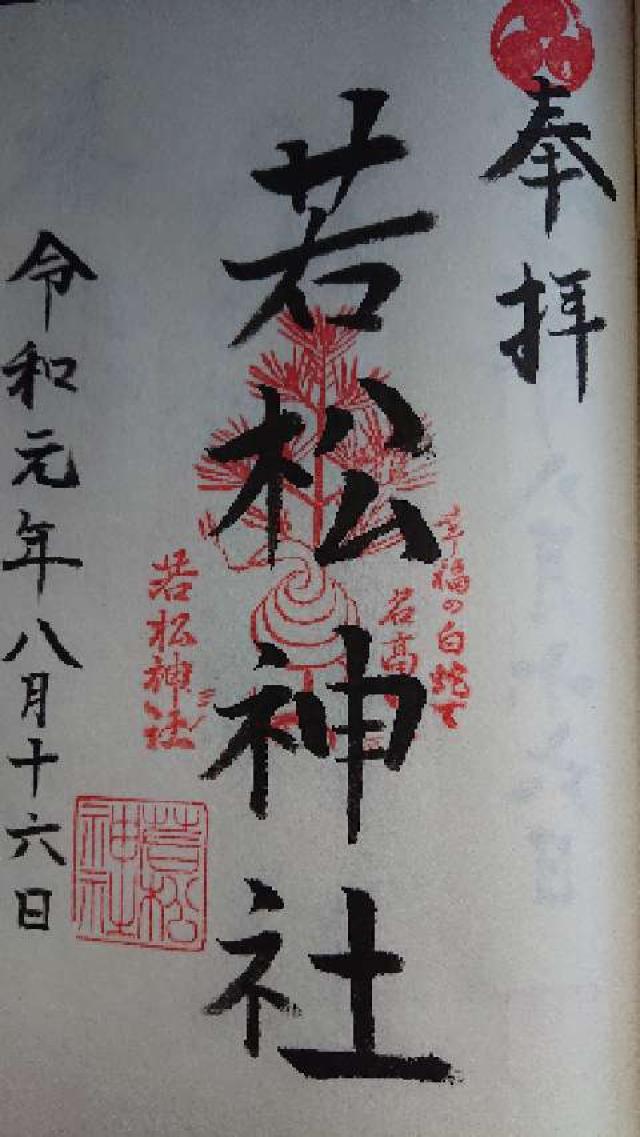 奉拝
幸福の白蛇で
名高い
若松神社
若松神社
若松神社
令和元年八月十六日